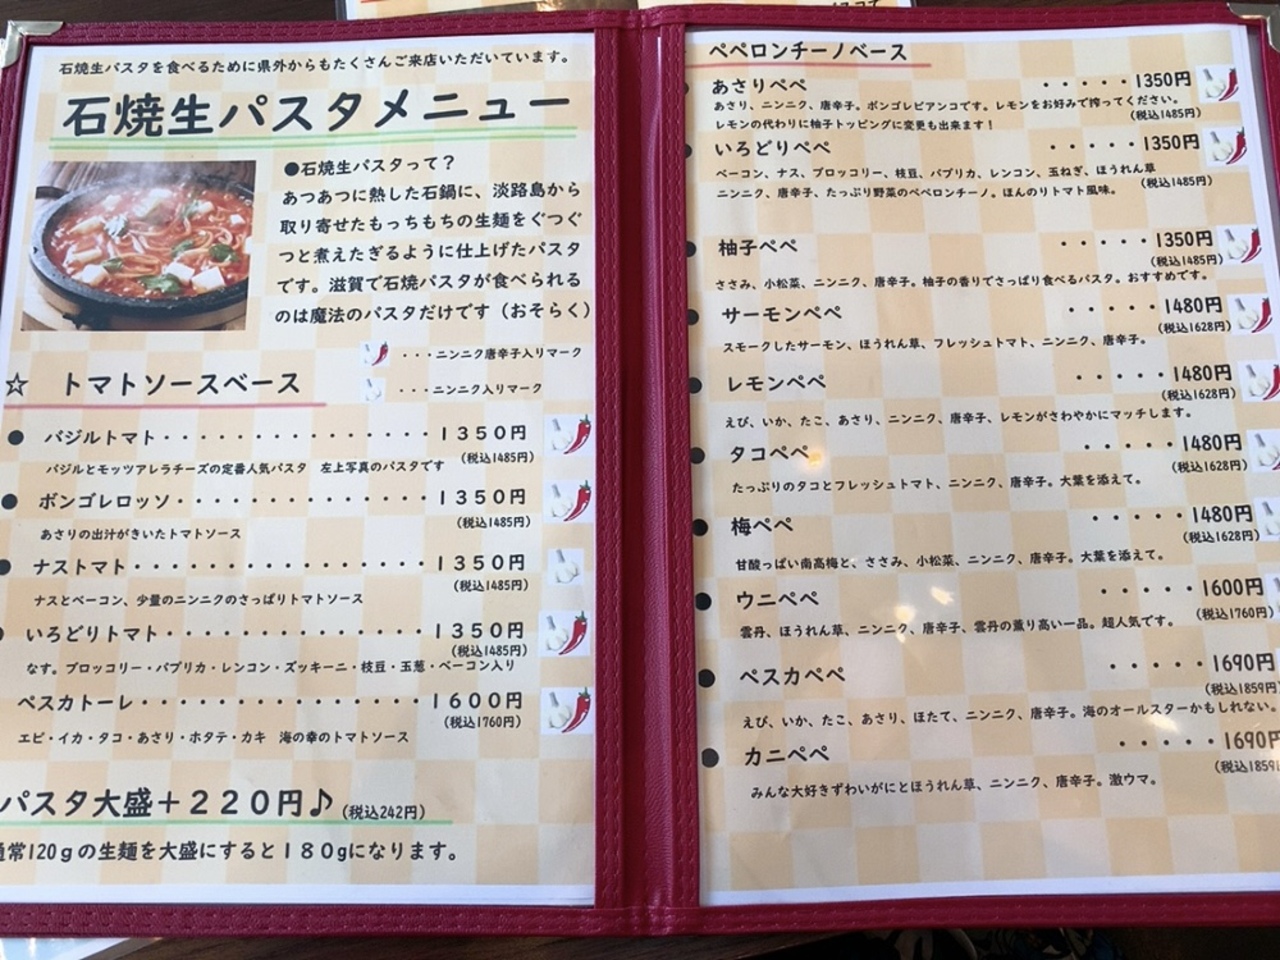 石焼生パスタを食べるために県外からもたくさんご来店いただいています。
石焼生パスタメニュー
●石焼生パスタって？
あつあつに熱した石鍋に、淡路島から
取り寄せたもっちもちの生麺をぐつぐ
つと煮えたぎるように仕上げたパスタ
です。滋賀で石焼パスタが食べられる
のは魔法のパスタだけです（おそらく）
・・・ニンニク唐辛子入りマーク
・・・ニンニク入りマーク
☆ トマトソースベース
● バジルトマト・・・・・・・・・・・・・・・１３５０円
(税込1485円)
バジルとモッツアレラチーズの定番人気パスタ 左上写真のパスタです
● ボンゴレロッソ・・・・・・・・・・・・・・１３５０円
(税込1485円)
あさりの出汁がきいたトマトソース
● ナストマト・・・・・・・・・・・・・・・・１３５０円
(税込1485円)
ナスとベーコン、少量のニンニクのさっぱりトマトソース
● いろどりトマト・・・・・・・・・・・・・・１３５０円
(税込1485円)
なす。ブロッコリー・パプリカ・レンコン・ズッキーニ・枝豆・玉葱・ベーコン入り
ペスカトーレ・・・・・・・・・・・・・・・１６００円
(税込1760円)
エビ・イカ・タコ・あさり・ホタテ・カキ 海の幸のトマトソース
パスタ大盛＋２２０円♪(税込242円)
通常120ｇの生麺を大盛にすると１８０gになります。
ペペロンチーノベース
あさりペペ ・・・・・1350円
あさり、ニンニク、唐辛子。ボンゴレビアンコです。レモンをお好みで搾ってください。
(税込1485円)
レモンの代わりに柚子トッピングに変更も出来ます！
● いろどりペペ ・・・・・1350円
ベーコン、ナス、ブロッコリー、枝豆、パプリカ、レンコン、玉ねぎ、ほうれん草
(税込1485円)
ニンニク、唐辛子、たっぷり野菜のペペロンチーノ。ほんのりトマト風味。
● 柚子ペペ ・・・・・1350円
(税込1485円)
ささみ、小松菜、ニンニク、唐辛子。柚子の香りでさっぱり食べるパスタ。おすすめです。
● サーモンペペ ・・・・・1480円
(税込1628円)
スモークしたサーモン、ほうれん草、フレッシュトマト、ニンニク、唐辛子。
● レモンペペ ・・・・・1480円
(税込1628円)
えび、いか、たこ、あさり、ニンニク、唐辛子、レモンがさわやかにマッチします。
● タコペペ ・・・・・1480円
(税込1628円)
たっぷりのタコとフレッシュトマト、ニンニク、唐辛子。大葉を添えて。
● 梅ペペ ・・・・・1480円
(税込1628円)
甘酸っぱい南高梅と、ささみ、小松菜、ニンニク、唐辛子。大葉を添えて。
● ウニペペ ・・・・・1600円
(税込1760円)
雲丹、ほうれん草、ニンニク、唐辛子、雲丹の薫り高い一品。超人気です。
● ペスカペペ ・・・・・1690円
(税込1859円)
えび、いか、たこ、あさり、ほたて、ニンニク、唐辛子。海のオールスターかもしれない。
● カニペペ ・・・・・1690円
(税込1859円
みんな大好きずわいがにとほうれん草、ニンニク、唐辛子。激ウマ。